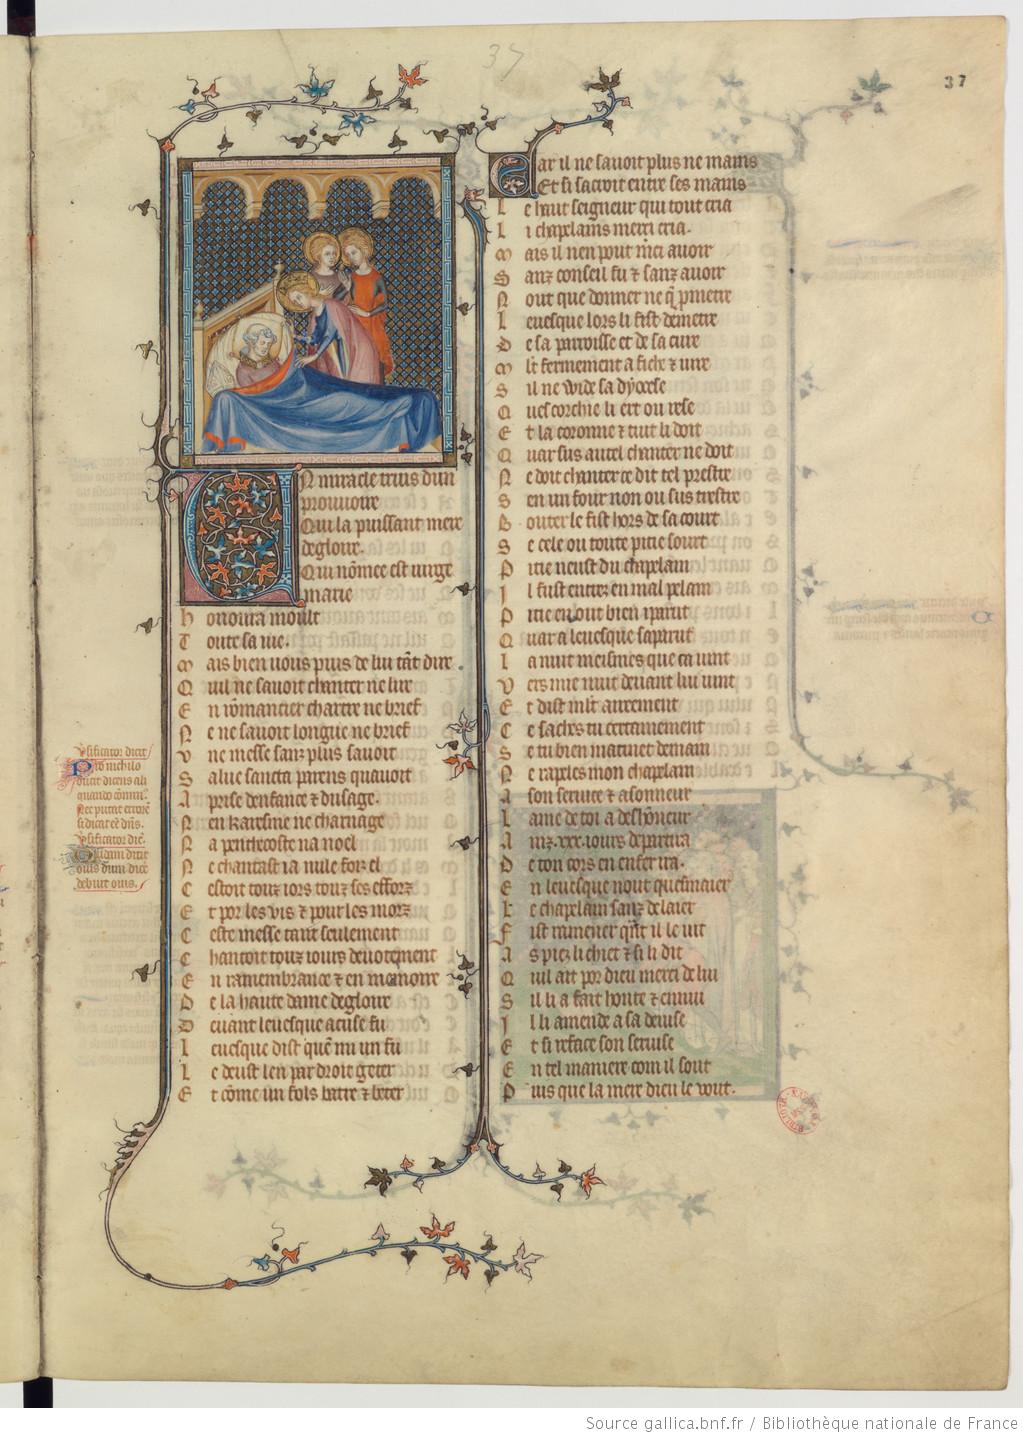 37
37
UN miracle truis dun
prouuoire
Qui la puissant mere
de gloire.
Qui nōmee est uirge
marie
Honoura moult
Toute sa uie.
Mais bien uous puis de lui tāt dire
Quil ne sauoit chanter ne lire
En rōmancier chartre ne brief
Ne ne sauoit longue ne brief
Ne messe sanz plus sauoit
Salue sancta parens quauoit
Aprise denfance ⁊ dusage.
Nen karesme ne charnage
Na penthecoste na noel
Ne chantast ia nule foiz el
Cestoit touz iors touz ses efforz
Et por les vis ⁊ pour les morz
Ceste messe tant seulement
Chantoit touz iours deuotement
En ramembrance ⁊ en memoire
De la haute dame de gloire
Deuant leuesque acuse fu
Leuesque dist quē mi un fu
Le deust len par droit geter
Et cōme un fols batre ⁊ beter
Psificator dicit
Pro nichilo
putat dicens ali
quando cōmuni.
Nec putat errorē
si dicat cē dn̄s.
Psificator dic̄.
Quidam dicit
ouis dum dice
debuit ouis.
Car il ne sauoit plus ne mains
Et si sacroit entre ses mains
Le haut seigneur qui tout cria
Li chapelains merci cria.
Mais il nen pout m̄ci auoir
Sanz conseil fu ⁊ sanz auoir
Nout que donner ne q̄ pmetre
Leuesque lors li fist demetre
De sa parroisse et de sa cure
Mlt fermement a fiche ⁊ iure
Sil ne wide sa dyocese
Ques corchie li ert ou rese
Et la coronne ⁊ tuit li doit
Quar sus autel chanter ne doit
Ne doit chanter ce dit tel prestre
Sen un four non ou sus trestre
Bouter le fist hors de sa court
Se cele ou toute pitie sourt
Pitie neust du chapelain
Il fust entrez en mal pelain
Pitie en out bien i parut
Quar a leuesque saparut
La nuit meismes que ca uint
Vers mie nuit deuant lui uint
Et dist mlt aurement
Ce saches tu certainement
Se tu bien matinet demain
Ne rapeles mon chapelain
A son seruice ⁊ a sonneur
Lame de toi a deshōneur
Ainz .xxx. iours departira
De ton cors en enfer ira.
En leuesque nout quesmaier
Le chapelain sanz delaier
Fist ramener quāt il le uit
As piez li chiet ⁊ si li dit
Quil ait por dieu merci de lui
Sil li a fait honte ⁊ ennui
Il li amende a sa deuise
Et si reface son seruise
En tel maniere com il sout
Puis que la mere dieu le vout.
Source gallica.bnf.fr / Bibliothèque nationale de France